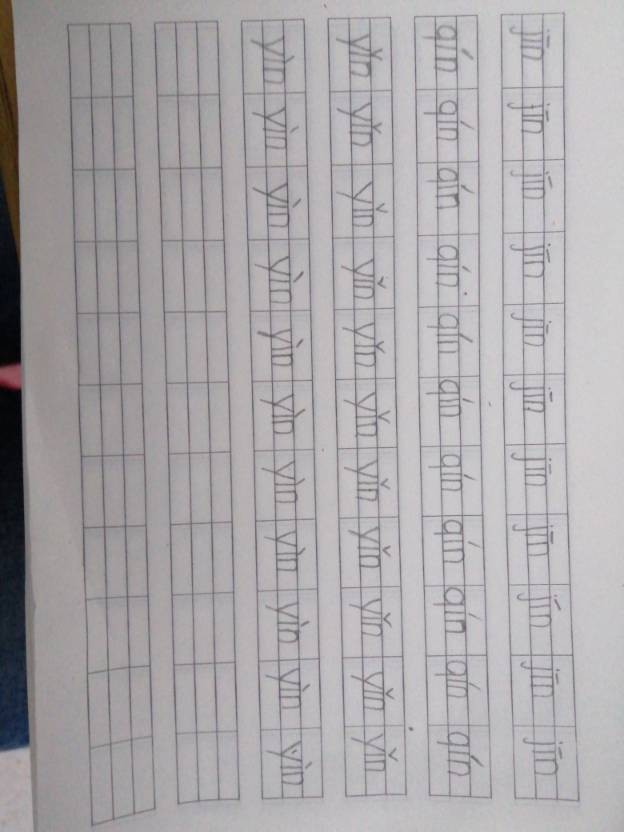 jīn jīn jīn jīn jīn jīn jīn jīn jīn jīn jīn
qín qín qín qín qín qín qín qín qín qín qín
yǐn yǐn yǐn yǐn yǐn yǐn yǐn yǐn yǐn yǐn yǐn
yìn yìn yìn yìn yìn yìn yìn yìn yìn yìn yìn